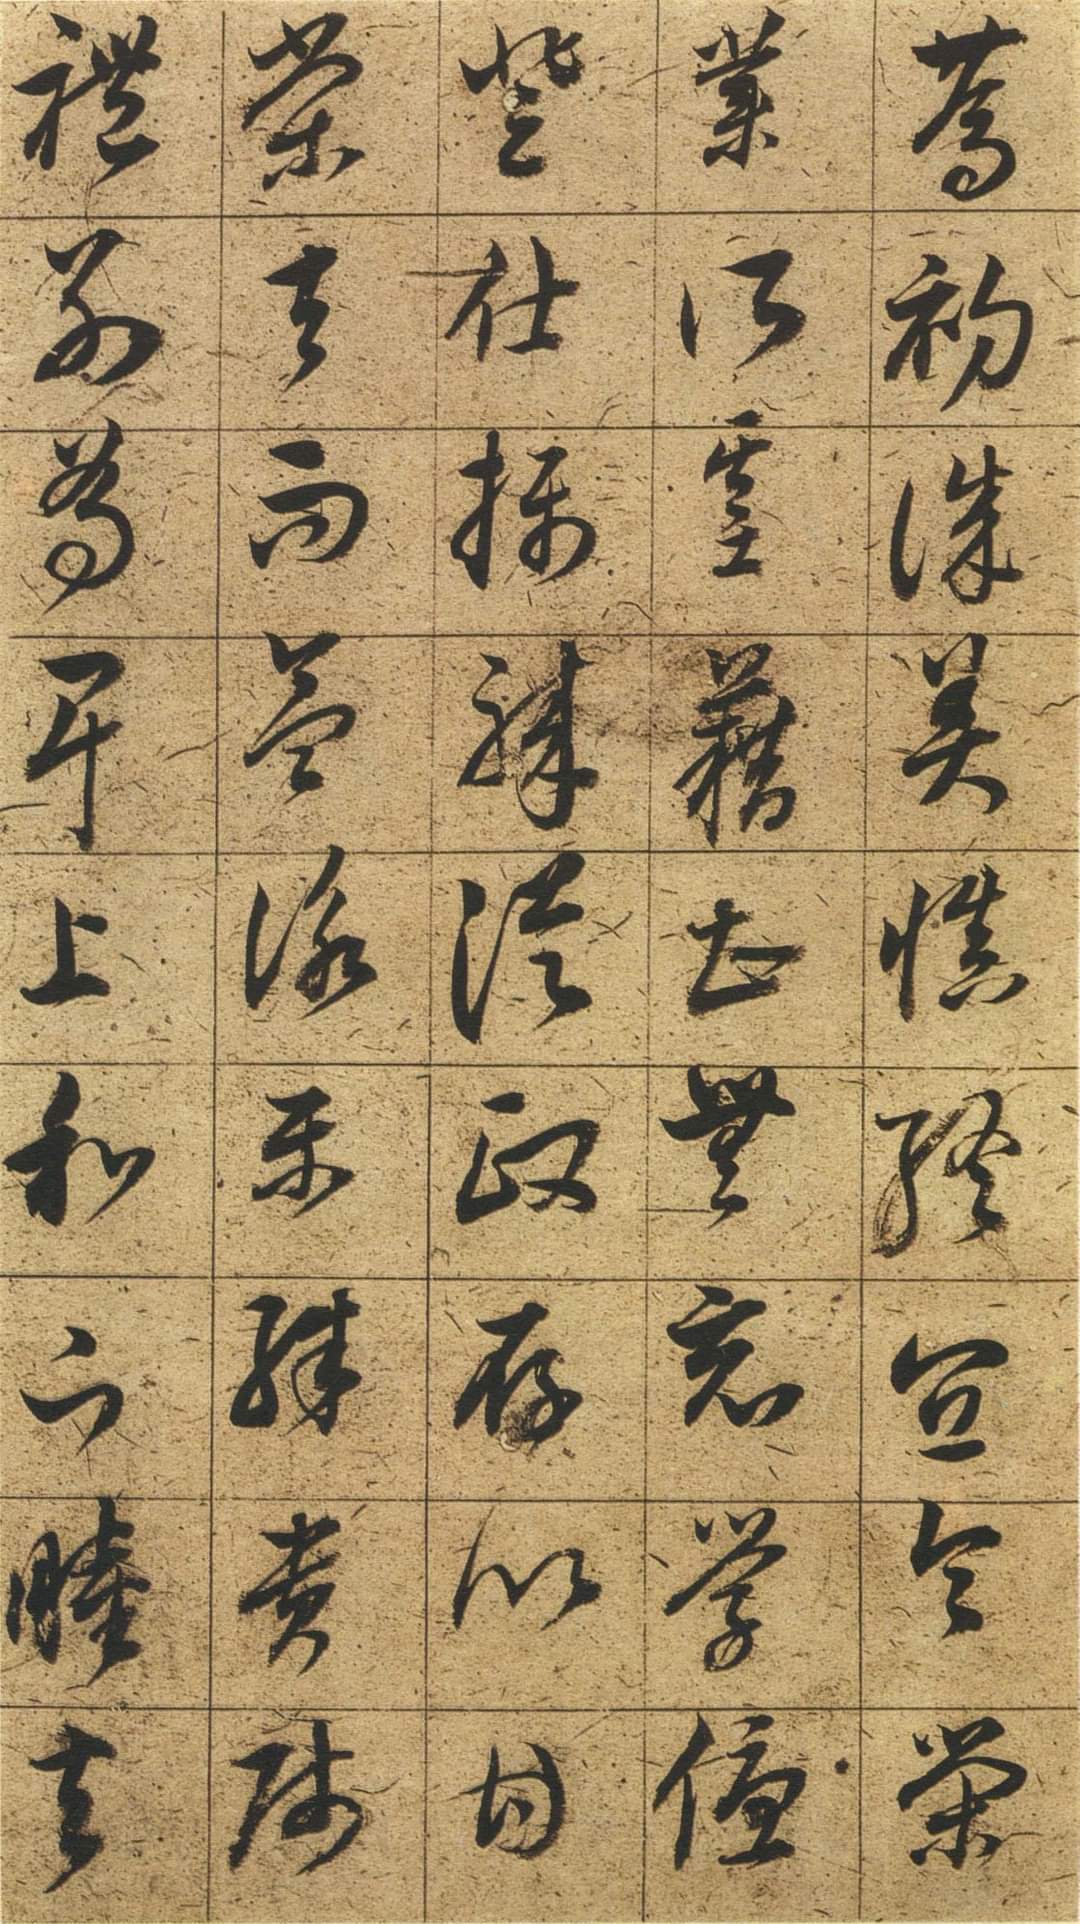 篤初誠美慎終宜令榮
業所基藉甚無竟學優
登仕攝職從政存以甘
棠去而益詠樂殊貴賤
禮別尊卑上和下睦夫